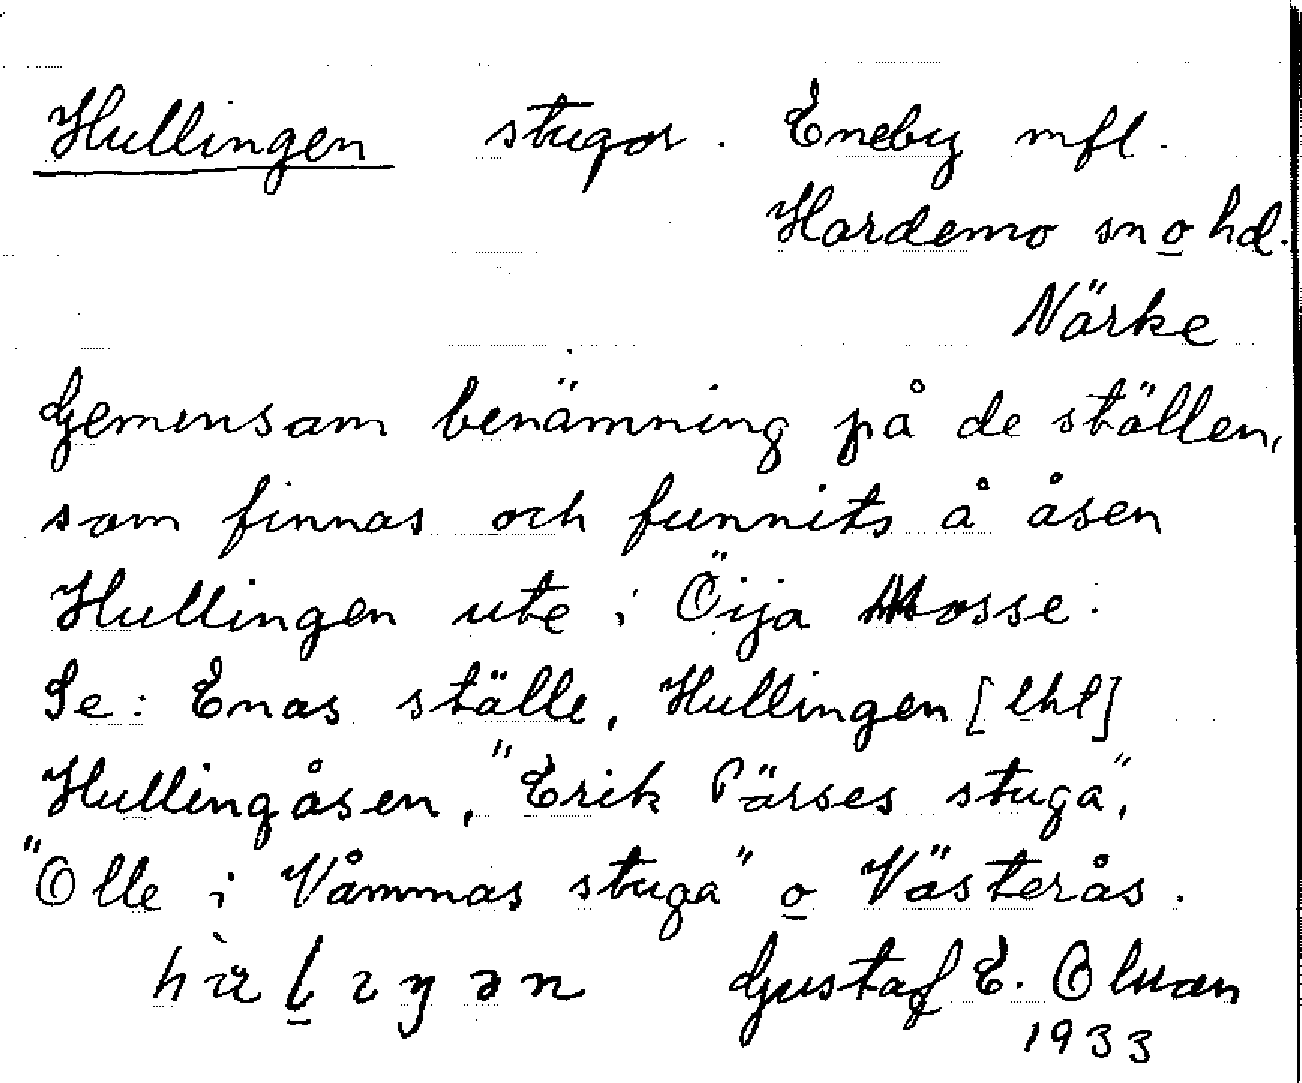 Hullingen stugor. Eneby mfl.
Hardemo sn o hd.
Närke
Gemensam benämning på de ställen,
som finnas och funnits å åsen
Hullingen ute i Öija Mosse.
Se: Enas ställe, Hullingen [lhl]
Hullingåsen, "Erik Pärses stuga",
"Olle i Våmmas stuga" o Västerås.
Gustaf E. Olman
1933